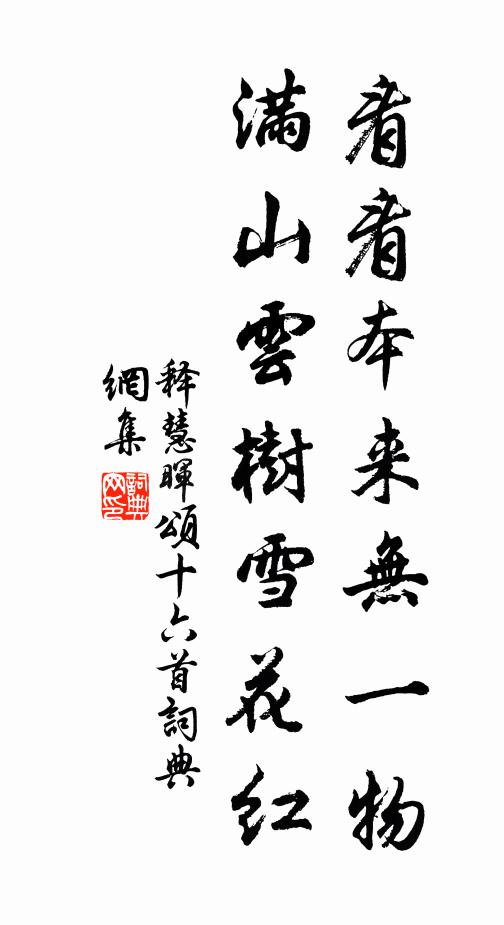 看看本来無一物
満山雲樹雪花红
释慧暉頌十六首詞典
網集
詞典
网印